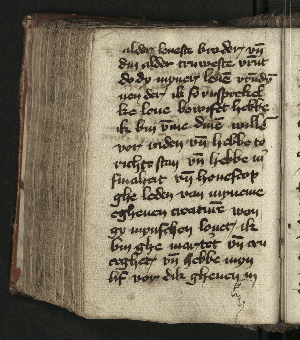 alder leueste broder vn̄
din alder truweste vrut
do dy myner leuē vrūdȳ
nen der ik so vnsprekel
ke leue bewiset hebbe
ik bin vāme dinē willē
vor riden vn̄ hebbe to
richte stan vn̄ hebbe in
smaheit vn̄ honescop
ghe leden van myneme
egheuen creaturē won
gy mynschen louet ik
bin ghe martet vn̄ cru
ceghet vn̄ hebbe myn
lif vor dik gheuen in